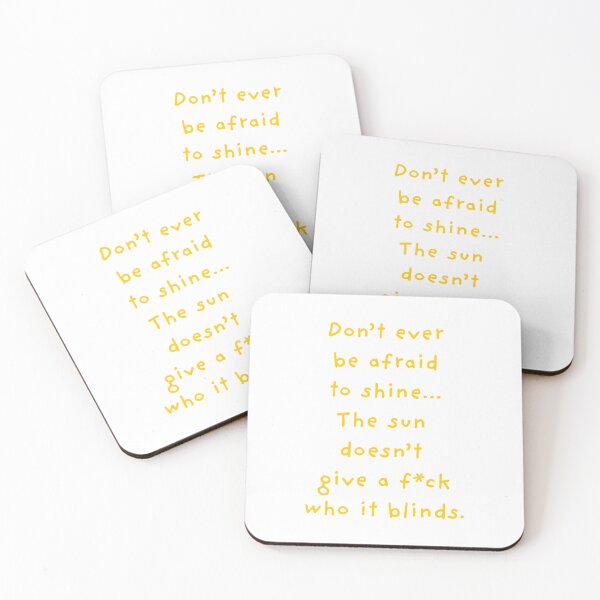 Don't ever
be afraid
to shine...
Don't ever
be afraid
to shine...
The sun
doesn't
Don't ever
be afraid
to shine...
The sun
doesn't
give a
who it
Don't ever
be afraid
to shine...
The sun
doesn't
give a f*ck
who it blinds.